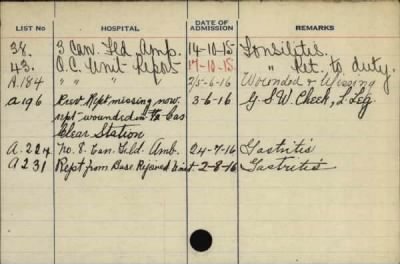 LIST NO HOSPITAL DATE OF ADMISSION REMARKS
38. 3 Can. Fld Amb. 14-10-15 Tonsilitis.
43. O.C. Unit Repots 17-10-15 " Ret. to duty.
A.184 " " " 2/5-6-16 Wounded & Missing
A196 Prev Rept missing now 3-6-16 G.S.W. Cheek, L. Leg
rept wounded in to Cas
Clear Station
A.224 No. 8. Can. Field. Amb. 24-7-16 Gastritis
A231 Rept from Base Rejoined Unit. -2-8-16 Gastritis